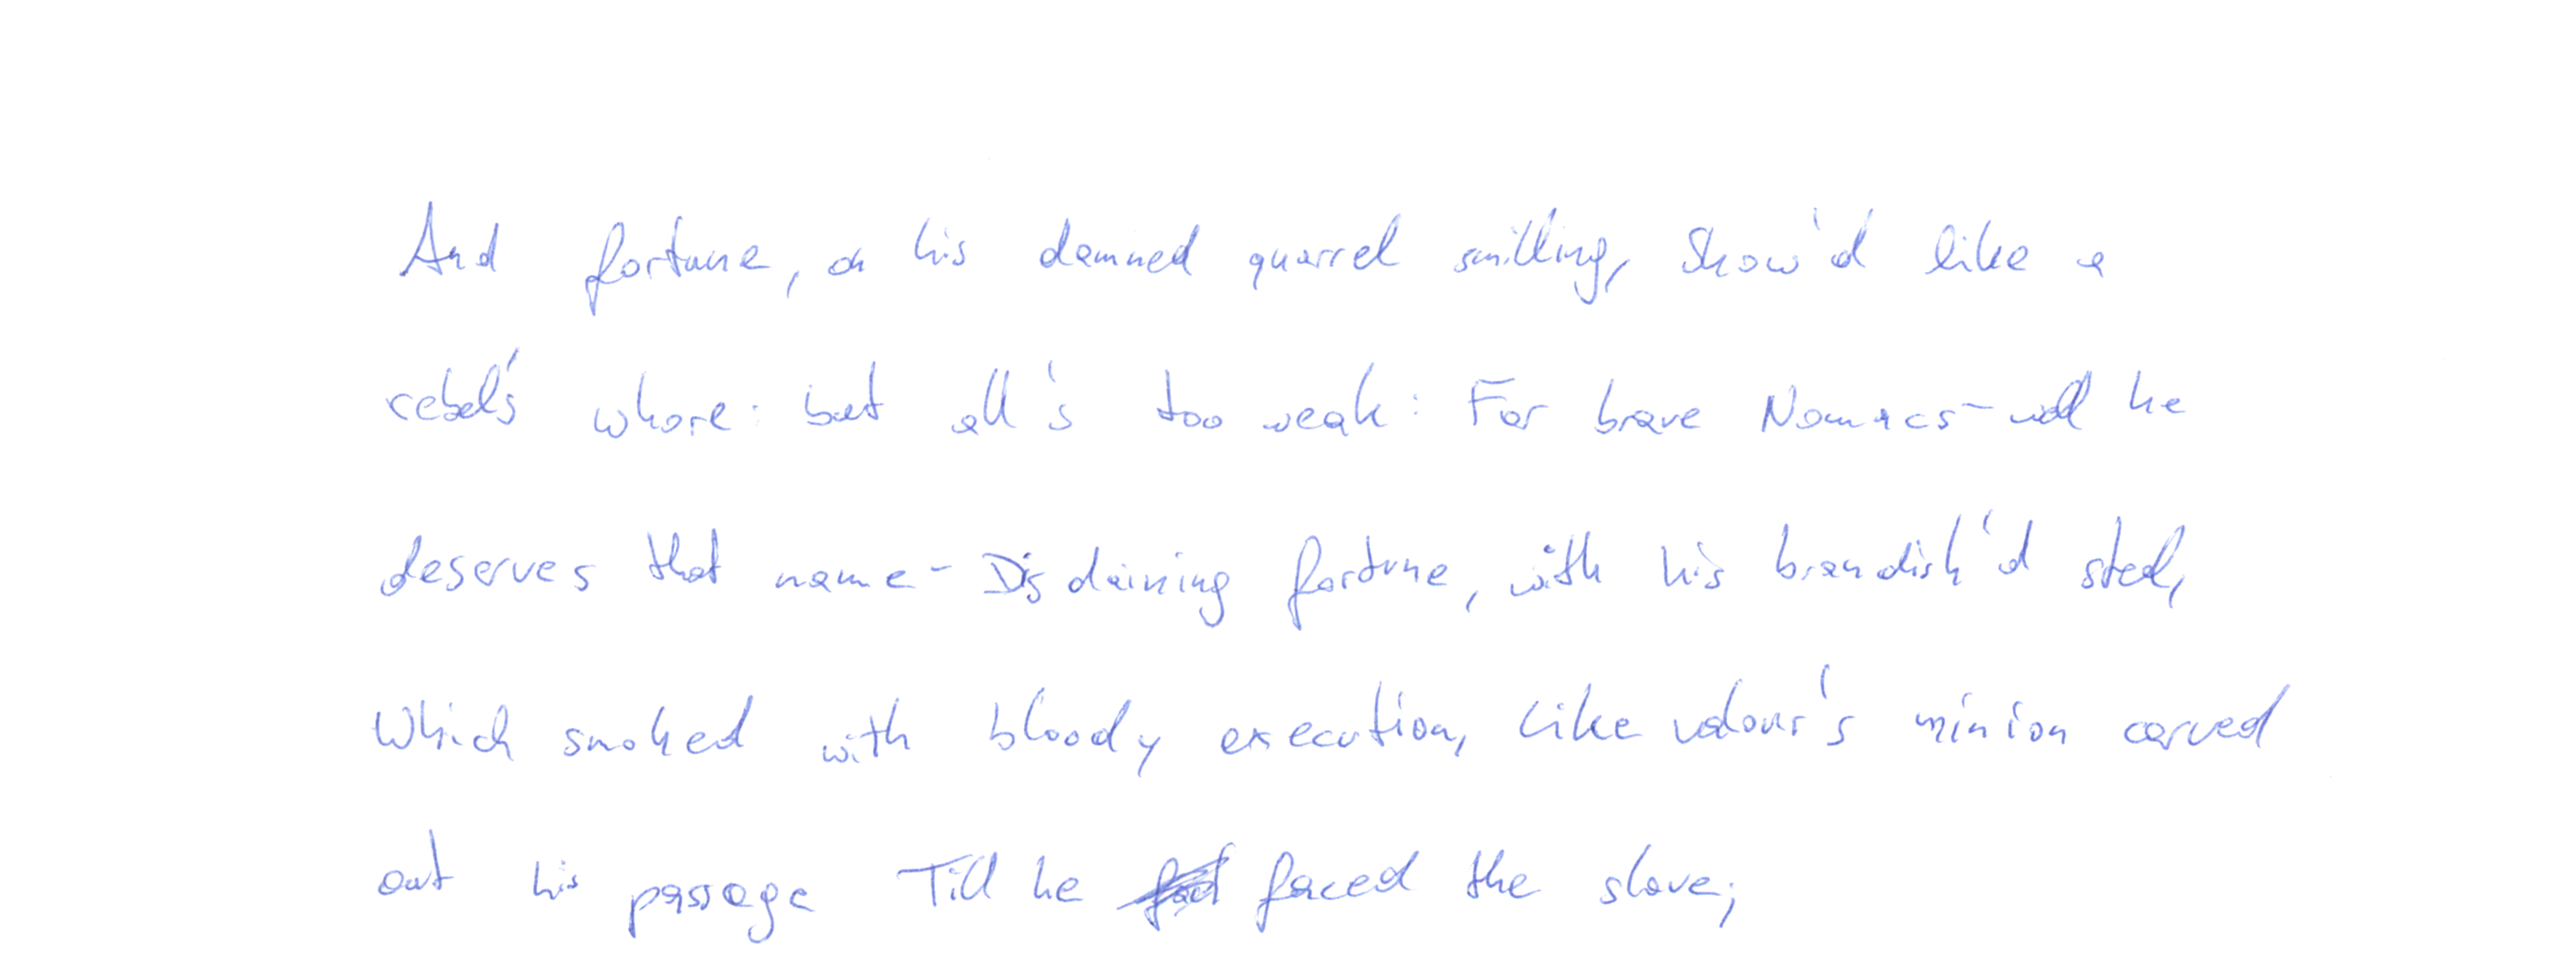 And fortune, on his damned quarrel smilling, Show'd like a
rebel's whore: but all's too weak: For brave Nomacs-well he
deserves that name - Disdaining fortune, with his brandish'd steel,
Which smoked with bloody execution, Like valour's minion carved
out his passage Till he faced the slave;